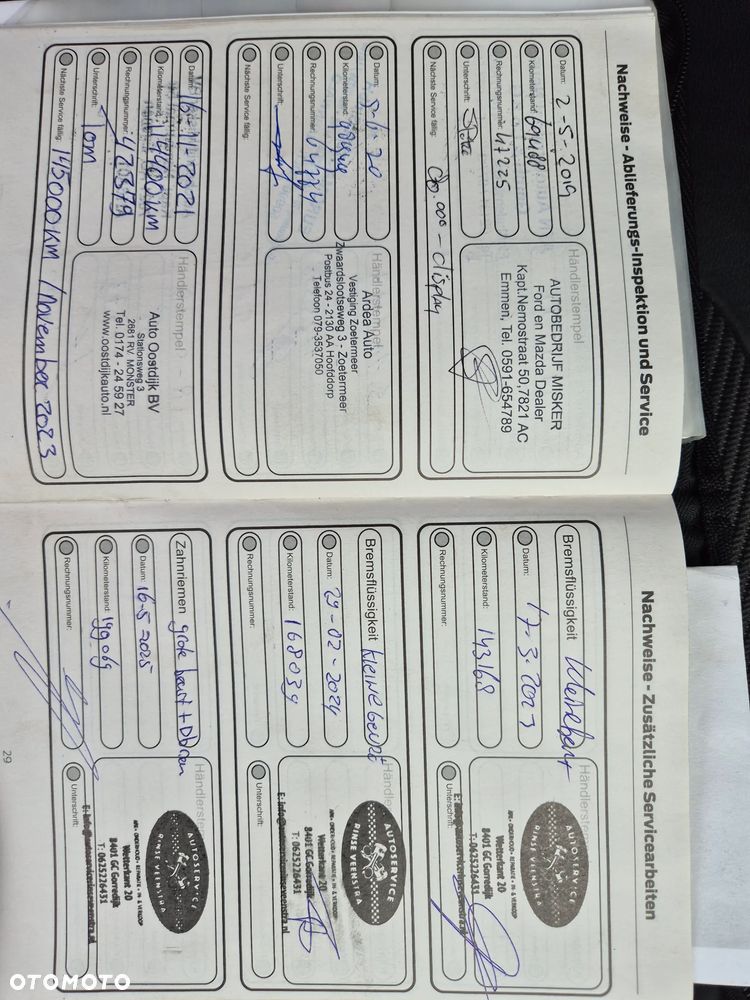 Nachweise - Ablieferungs-Inspektion und Service
Datum: 2-5-2019
Kilometerstand: 69488
Rechnungsnummer: 47225
Unterschrift:
Nächste Service fällig: - display
Händlerstempel
AUTOBEDRIJF MISKER
Ford en Mazda Dealer
Kapt.Nemostraat 50,7821 AC
Emmen, Tel. 0591-654789
Datum:
Kilometerstand:
Rechnungsnummer:
Unterschrift:
Nächste Service fällig:
Händlerstempel
Ardea Auto
Vestiging Zoetermeer
Zwaardslootseweg 3 - Zoetermeer
Postbus 24 - 2130 AA Hoofddorp
Telefoon 079-3537050
Datum: 16-11-2021
Kilometerstand: km
Rechnungsnummer: 425379
Unterschrift: Tom
Nächste Service fällig: 145000km / november 2023
Händlerstempel
Auto Oostdijk BV
Stationsweg 3
2681 RV MONSTER
Tel. 0174 - 24 59 27
www.oostdijkauto.nl
Nachweise - Zusätzliche Servicearbeiten
Bremsflüssigkeit
Datum: 17-3-2023
Kilometerstand: 143168
Rechnungsnummer:
Unterschrift:
Händlerstempel
AUTOSERVICE
RINSE VEENSTRA
APK - ONDERHOUD - REPARATIE - IN- & VERKOOP
Wetterkant 20
8401 GC Gorredijk
T: 0625226431
Bremsflüssigkeit kleine beurt
Datum: 29-02-2024
Kilometerstand: 168039
Rechnungsnummer:
Unterschrift:
AUTOSERVICE
RINSE VEENSTRA
APK - ONDERHOUD - REPARATIE - IN- & VERKOOP
Wetterkant 20
8401 GC Gorredijk
T: 0625226431
Zahnriemen grote beurt +
Datum: 16-5-2025
Kilometerstand: 199069
Rechnungsnummer:
Unterschrift:
AUTOSERVICE
RINSE VEENSTRA
APK - ONDERHOUD - REPARATIE - IN- & VERKOOP
Wetterkant 20
8401 GC Gorredijk
T: 0625226431
29
OTOMOTO